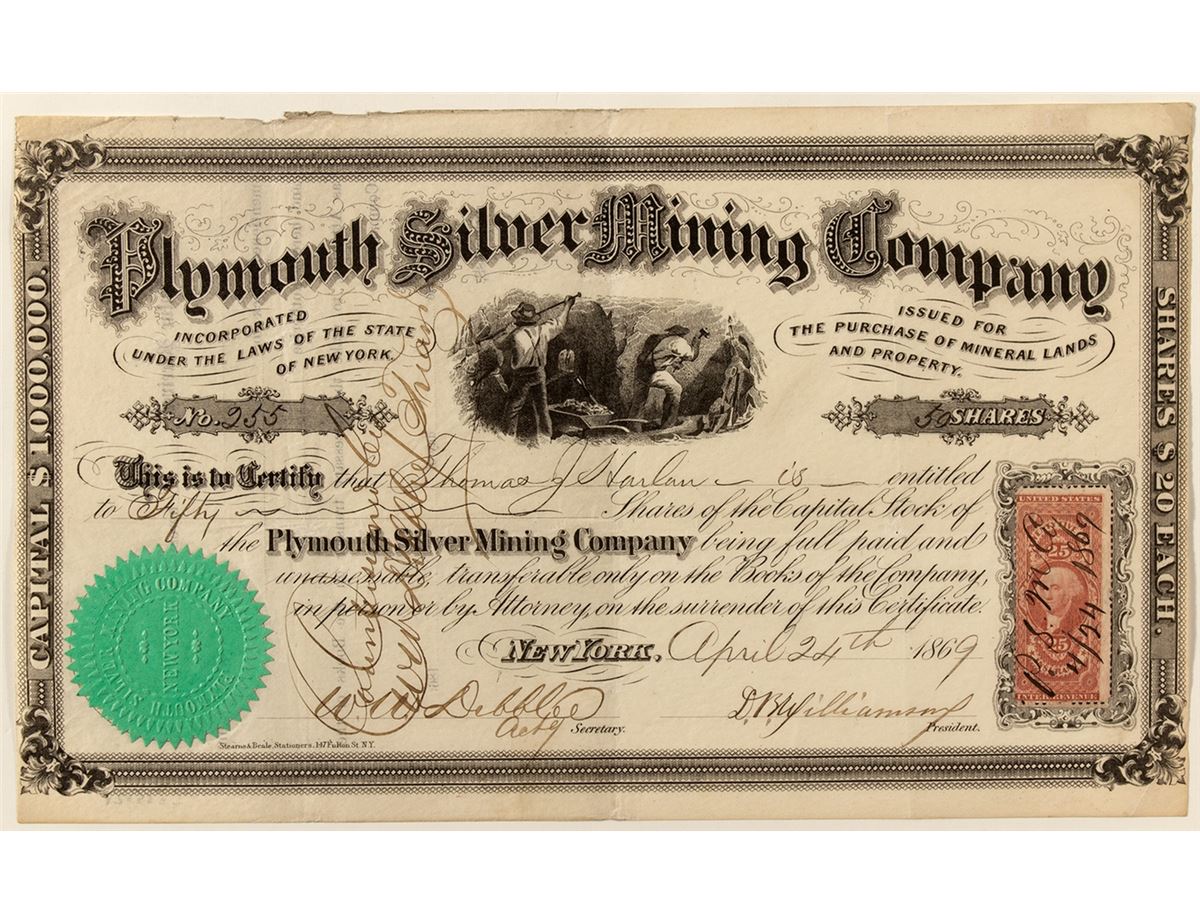 Plymouth Silver Mining Company
INCORPORATED
UNDER THE LAWS OF THE STATE
OF NEW YORK.
ISSUED FOR
THE PURCHASE OF MINERAL LANDS
AND PROPERTY.
No. 255
50 SHARES
This is to Certify that Thomas J Harlan is entitled
to Fifty Shares of the Capital Stock of
the Plymouth Silver Mining Company being full paid and
unassessable, transferable only on the Books of the Company,
in person or by Attorney, on the surrender of this Certificate.
NEW YORK, April 24th 1869
W. W. Debblee
Actg Secretary.
D. B. Williamson
President.
Stearns & Beale, Stationers. 147 Fulton St. N.Y.
CAPITAL $1000,000.
SHARES $20 EACH.
PLYMOUTH SILVER MINING COMPANY
NEW YORK
UNITED STATES
25
25
INTER. REVENUE
P. S. M Co
4/24 1869